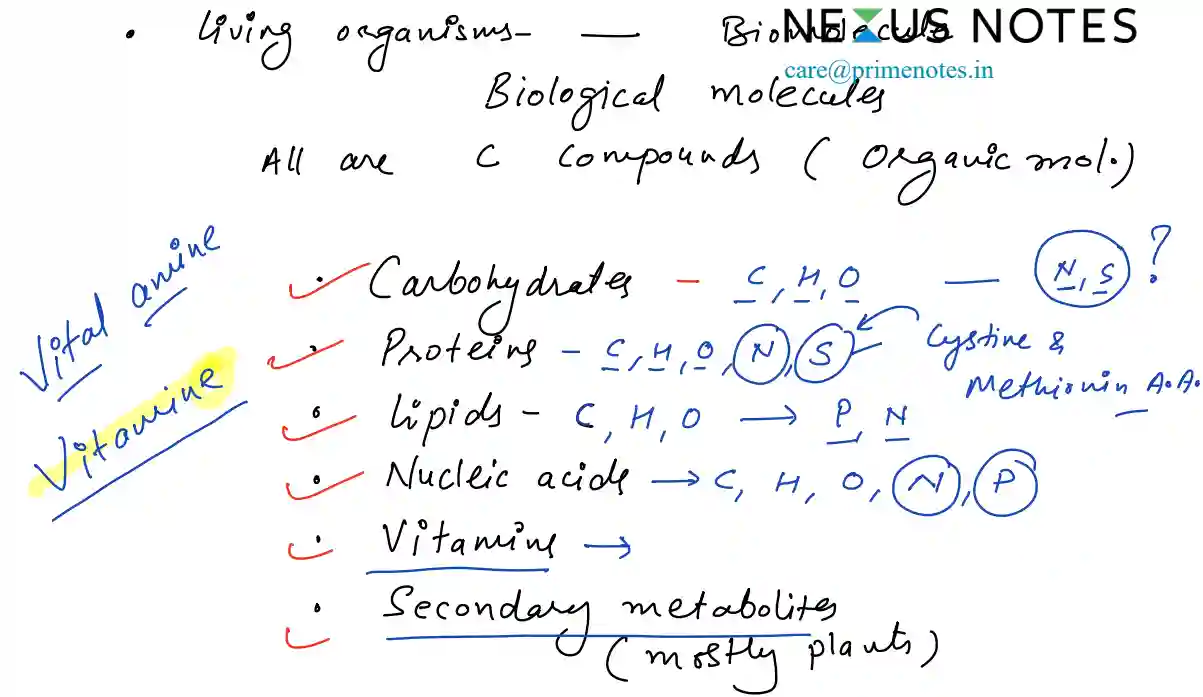 • Living organisms- — Biomolecule
NEXUS NOTES
care@primenotes.in
Biological molecules
All are C Compounds ( Organic mol.)
Vital amine
Vitamine
• Carbohydrates - C, H, O — N, S ?
• Proteins - C, H, O, N, S Cystine &
Methionin A.A.
• Lipids - C, H, O → P, N
• Nucleic acids → C, H, O, N, P
• Vitamins →
• Secondary metabolites
(mostly plants)